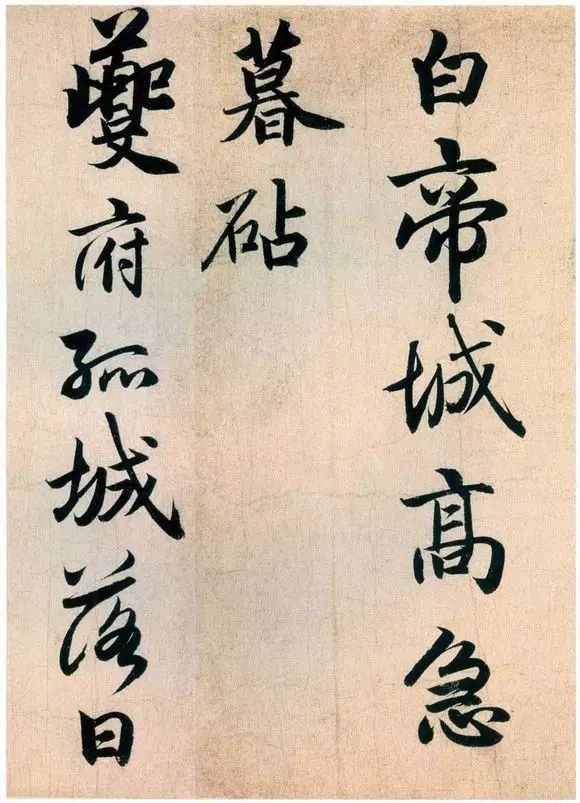 白帝城髙急
暮砧
夔府孤城落日